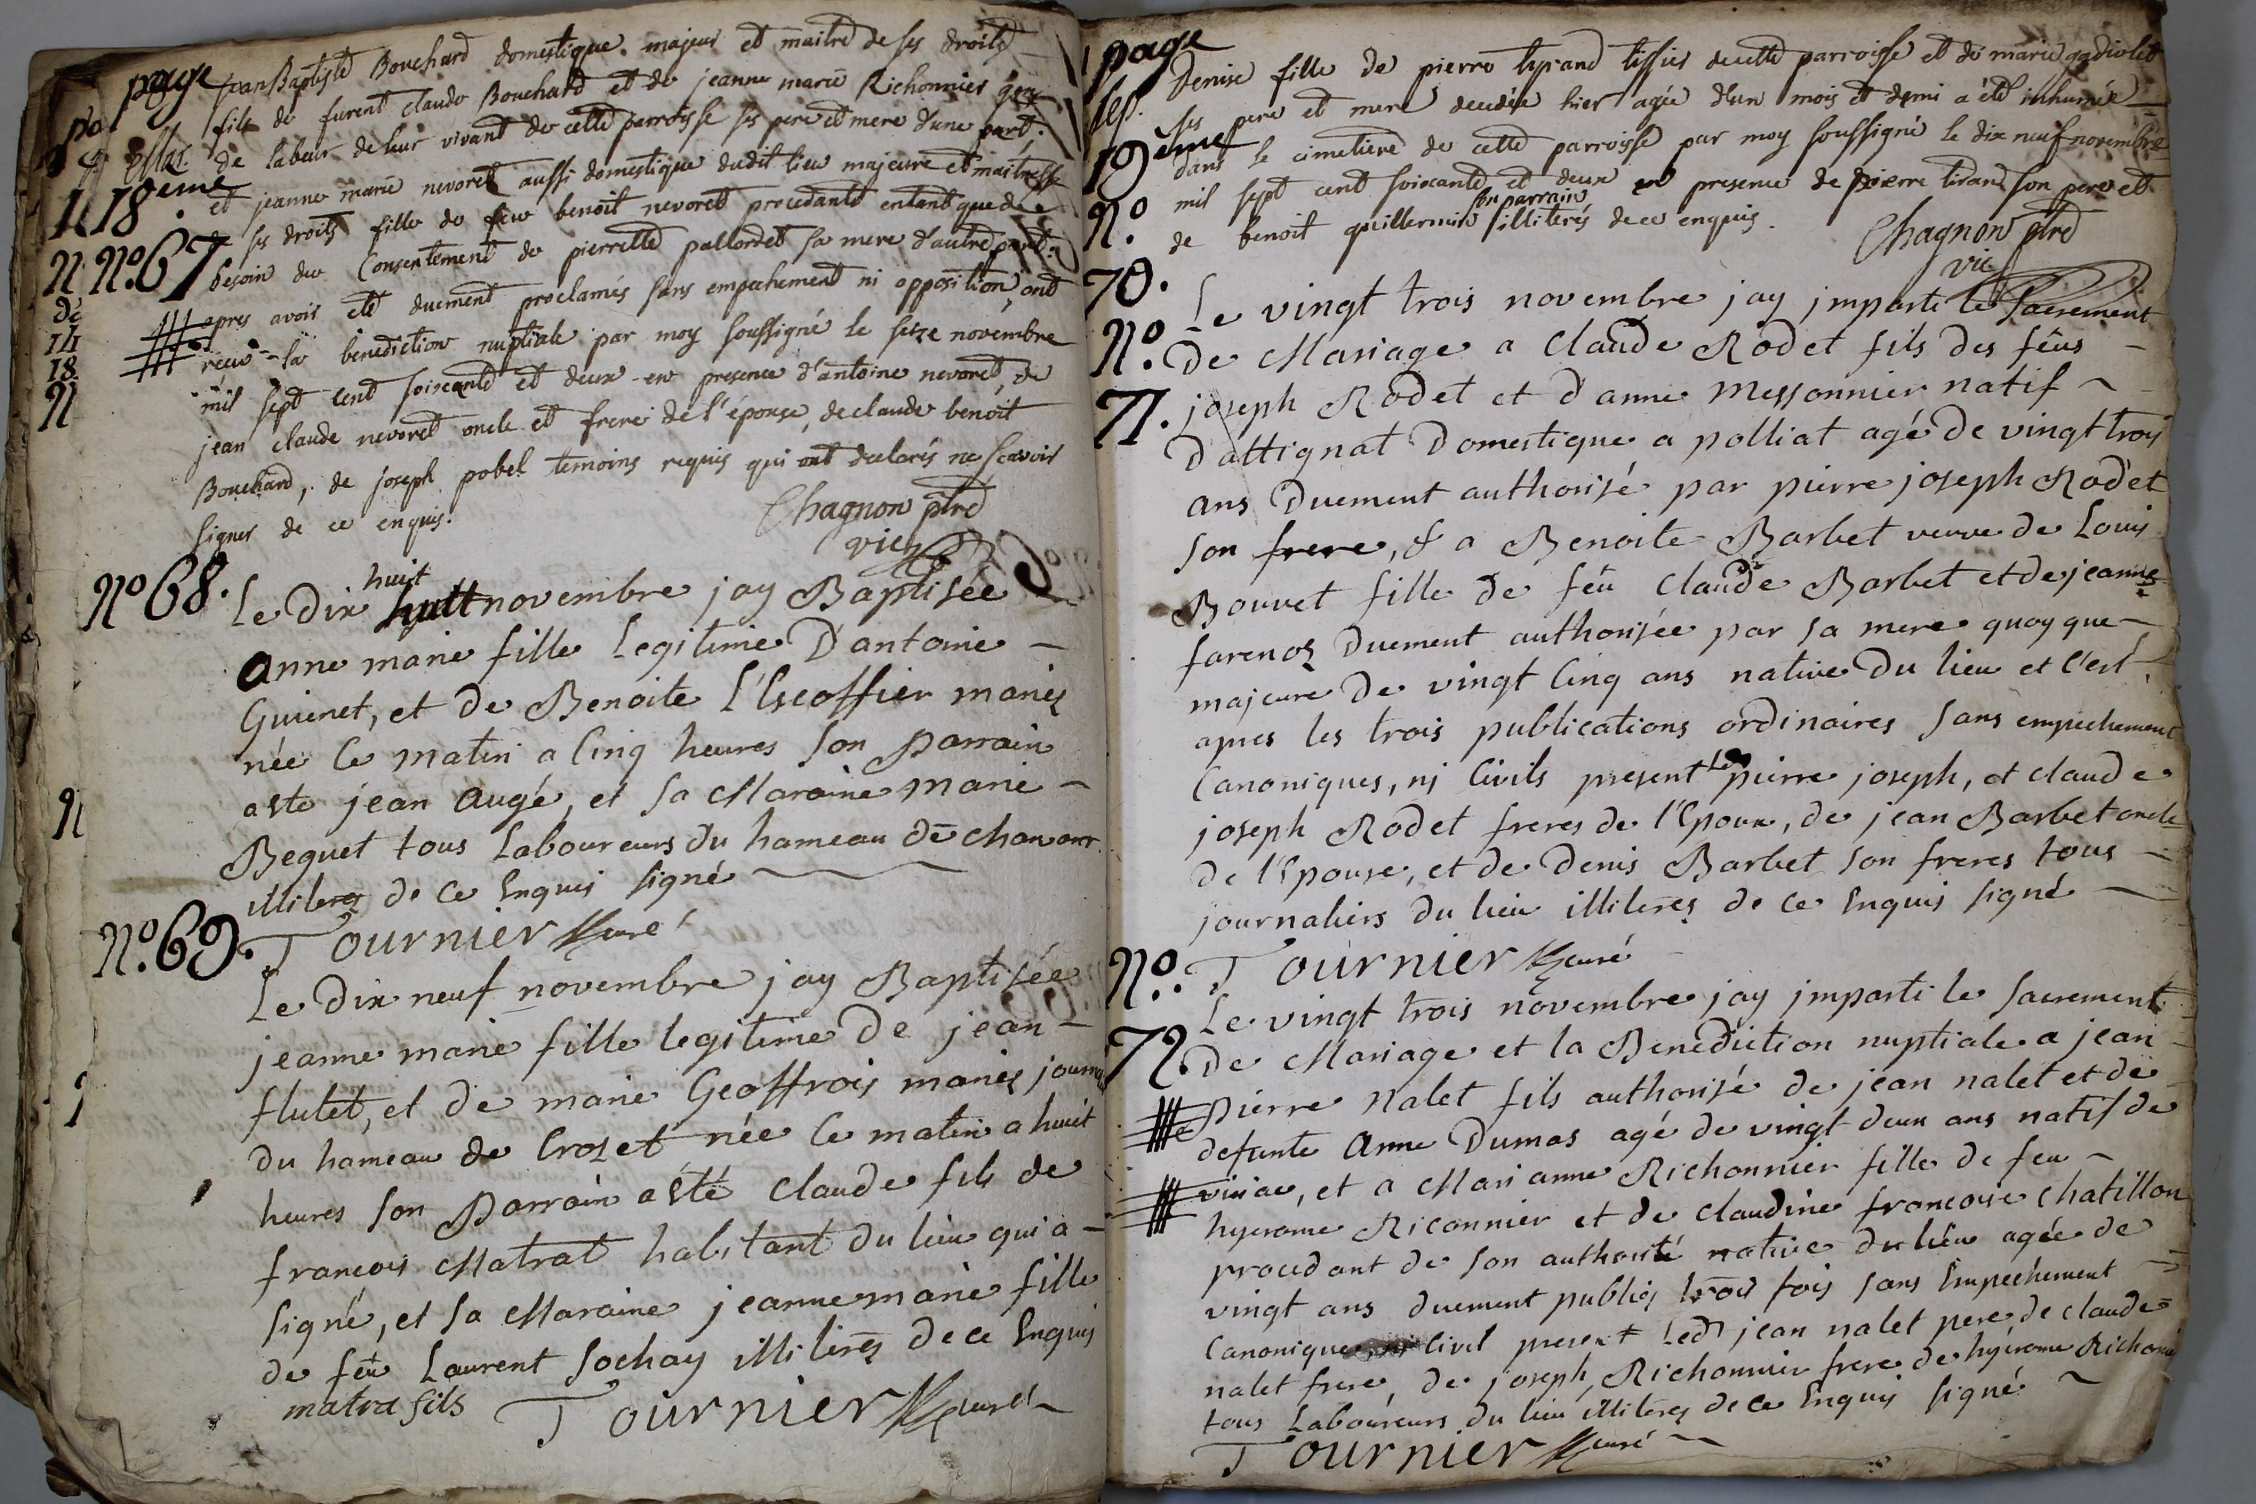 page
18eme
No 67
jean Baptiste Bouchard domestique majeur et maitre de ses droits
fils de furent Claude Bouchard et de jeanne marie Richonnier gens
de labeur de leur vivant de cette parroisse ses pere et mere d'une part.
et jeanne marie nevoret aussi domestique dudit lieu majeure et maitresse
de ses droits fille de feu benoit nevoret procedante entant que de
besoin du Consentement de pierrette pallordet sa mere d'autre part.
apres avoir été duement proclamés sans empechement ni opposition, ont
receu la benediction nuptiale par moy soussigné le seize novembre
mil sept cent soixante et deux en presence d'antoine nevoret, de
jean claude nevoret oncle et frere de l'épouse, de claude benoit
Bouchard, de joseph pobel temoins requis qui ont declarés ne scavoir
signer de ce enquis.
Chagnon ptre
vic
No 68.
Le Dix huit novembre jay Baptisée
anne marie fille Legitime D'antoine
Guienet, et de Benoite L'Escoffier mariés
née Ce matin a Cinq heures son Parrain
a ete jean Augé, et sa Maraine marie
Beguet tous Laboureurs du hameau de
illiteres de Ce Enquis signé
Tournier curé
No. 69.
Le Dix neuf novembre jay Baptisée
jeanne marie fille legitime De jean
flutet, et de marie Geoffrois mariés
du hameau de Croset née Ce matin a huit
heures son Parrain a été Claude fils de
francois Matrat habitant du lieu qui a
signé, et sa Maraine jeanne marie fille
de feu Laurent Sochay illiteres de ce Enquis
matra fils Tournier curé
page
19eme
No
70.
Denise fille de pierre tyrand tissier de cette parroisse et de marie
ses pere et mere decedée hier agée d'un mois et demi a été inhumée
dans le cimetiere de cette parroisse par moy soussigné le dix neuf novembre
mil sept cent soixante et deux en presence de pierre tirand son pere et
son parrain
de benoit guillermin illiterés de ce enquis.
Chagnon ptre
vic
No.
71.
Le vingt trois novembre jay jmparti le Sacrement
De Mariage a Claude Rodet fils des feus
joseph Rodet et d'anne Messonnier natif
D'attignat Domestique a polliat agé De vingt trois
ans Duement authorisé par pierre joseph Rodet
son frere, & a Benoite Barbet veuve de Louis
Bouvet fille de feu Claude Barbet et de jeanne
farenos Duement authorisée par sa mere quoy que
majeure De vingt Cinq ans native Du lieu et C'est
apres les trois publications ordinaires sans empechement
Canoniques, nj Civils present Les pierre joseph, et claude
joseph Rodet freres de l'Epoux, de jean Barbet oncle
de l'Epouse, et de Denis Barbet son freres tous
journaliers du lieu illiteres de Ce Enquis signé
Tournier curé
No.
72.
Le vingt trois novembre jay jmparti le Sacrement
De Mariage et la Benediction nuptiale a jean
pierre nalet fils authorisé de jean nalet et de
defunte Anne Dumas agé de vingt deux ans natif de
viriac, et a Marianne Richonnier fille de feu
hyerome Riconnier et de Claudine francoise Chatillon
procedant de son authorité native du lieu agée de
vingt ans duement publiés trois fois sans Empechement
Canonique, ni Civil present Led jean nalet pere de Claude
nalet frere, de joseph Richonnier frere de hyerome
tous Laboureurs du lieu illiteres de Ce Enquis signé
Tournier curé